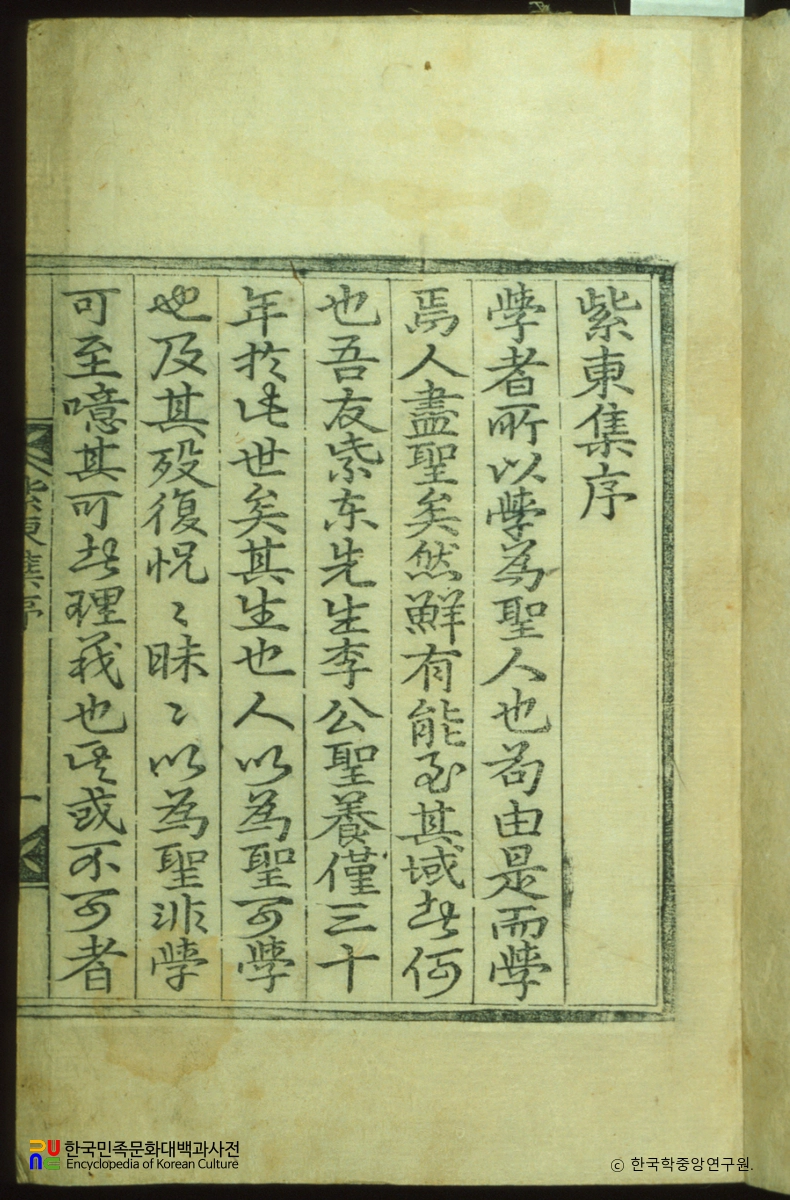 紫東集序
學者所以學為聖人也苟由是而學
焉人盡聖矣然鮮有能至其域者何
也吾友紫东先生李公聖養僅三十
年於此世矣其生也人以為聖可學
也及其歿復怳〻昧〻以為聖非學
可至噫其可者理義也其或不可者
紫東集序
一
한국민족문화대백과사전
Encyclopedia of Korean Culture
ⓒ 한국학중앙연구원.